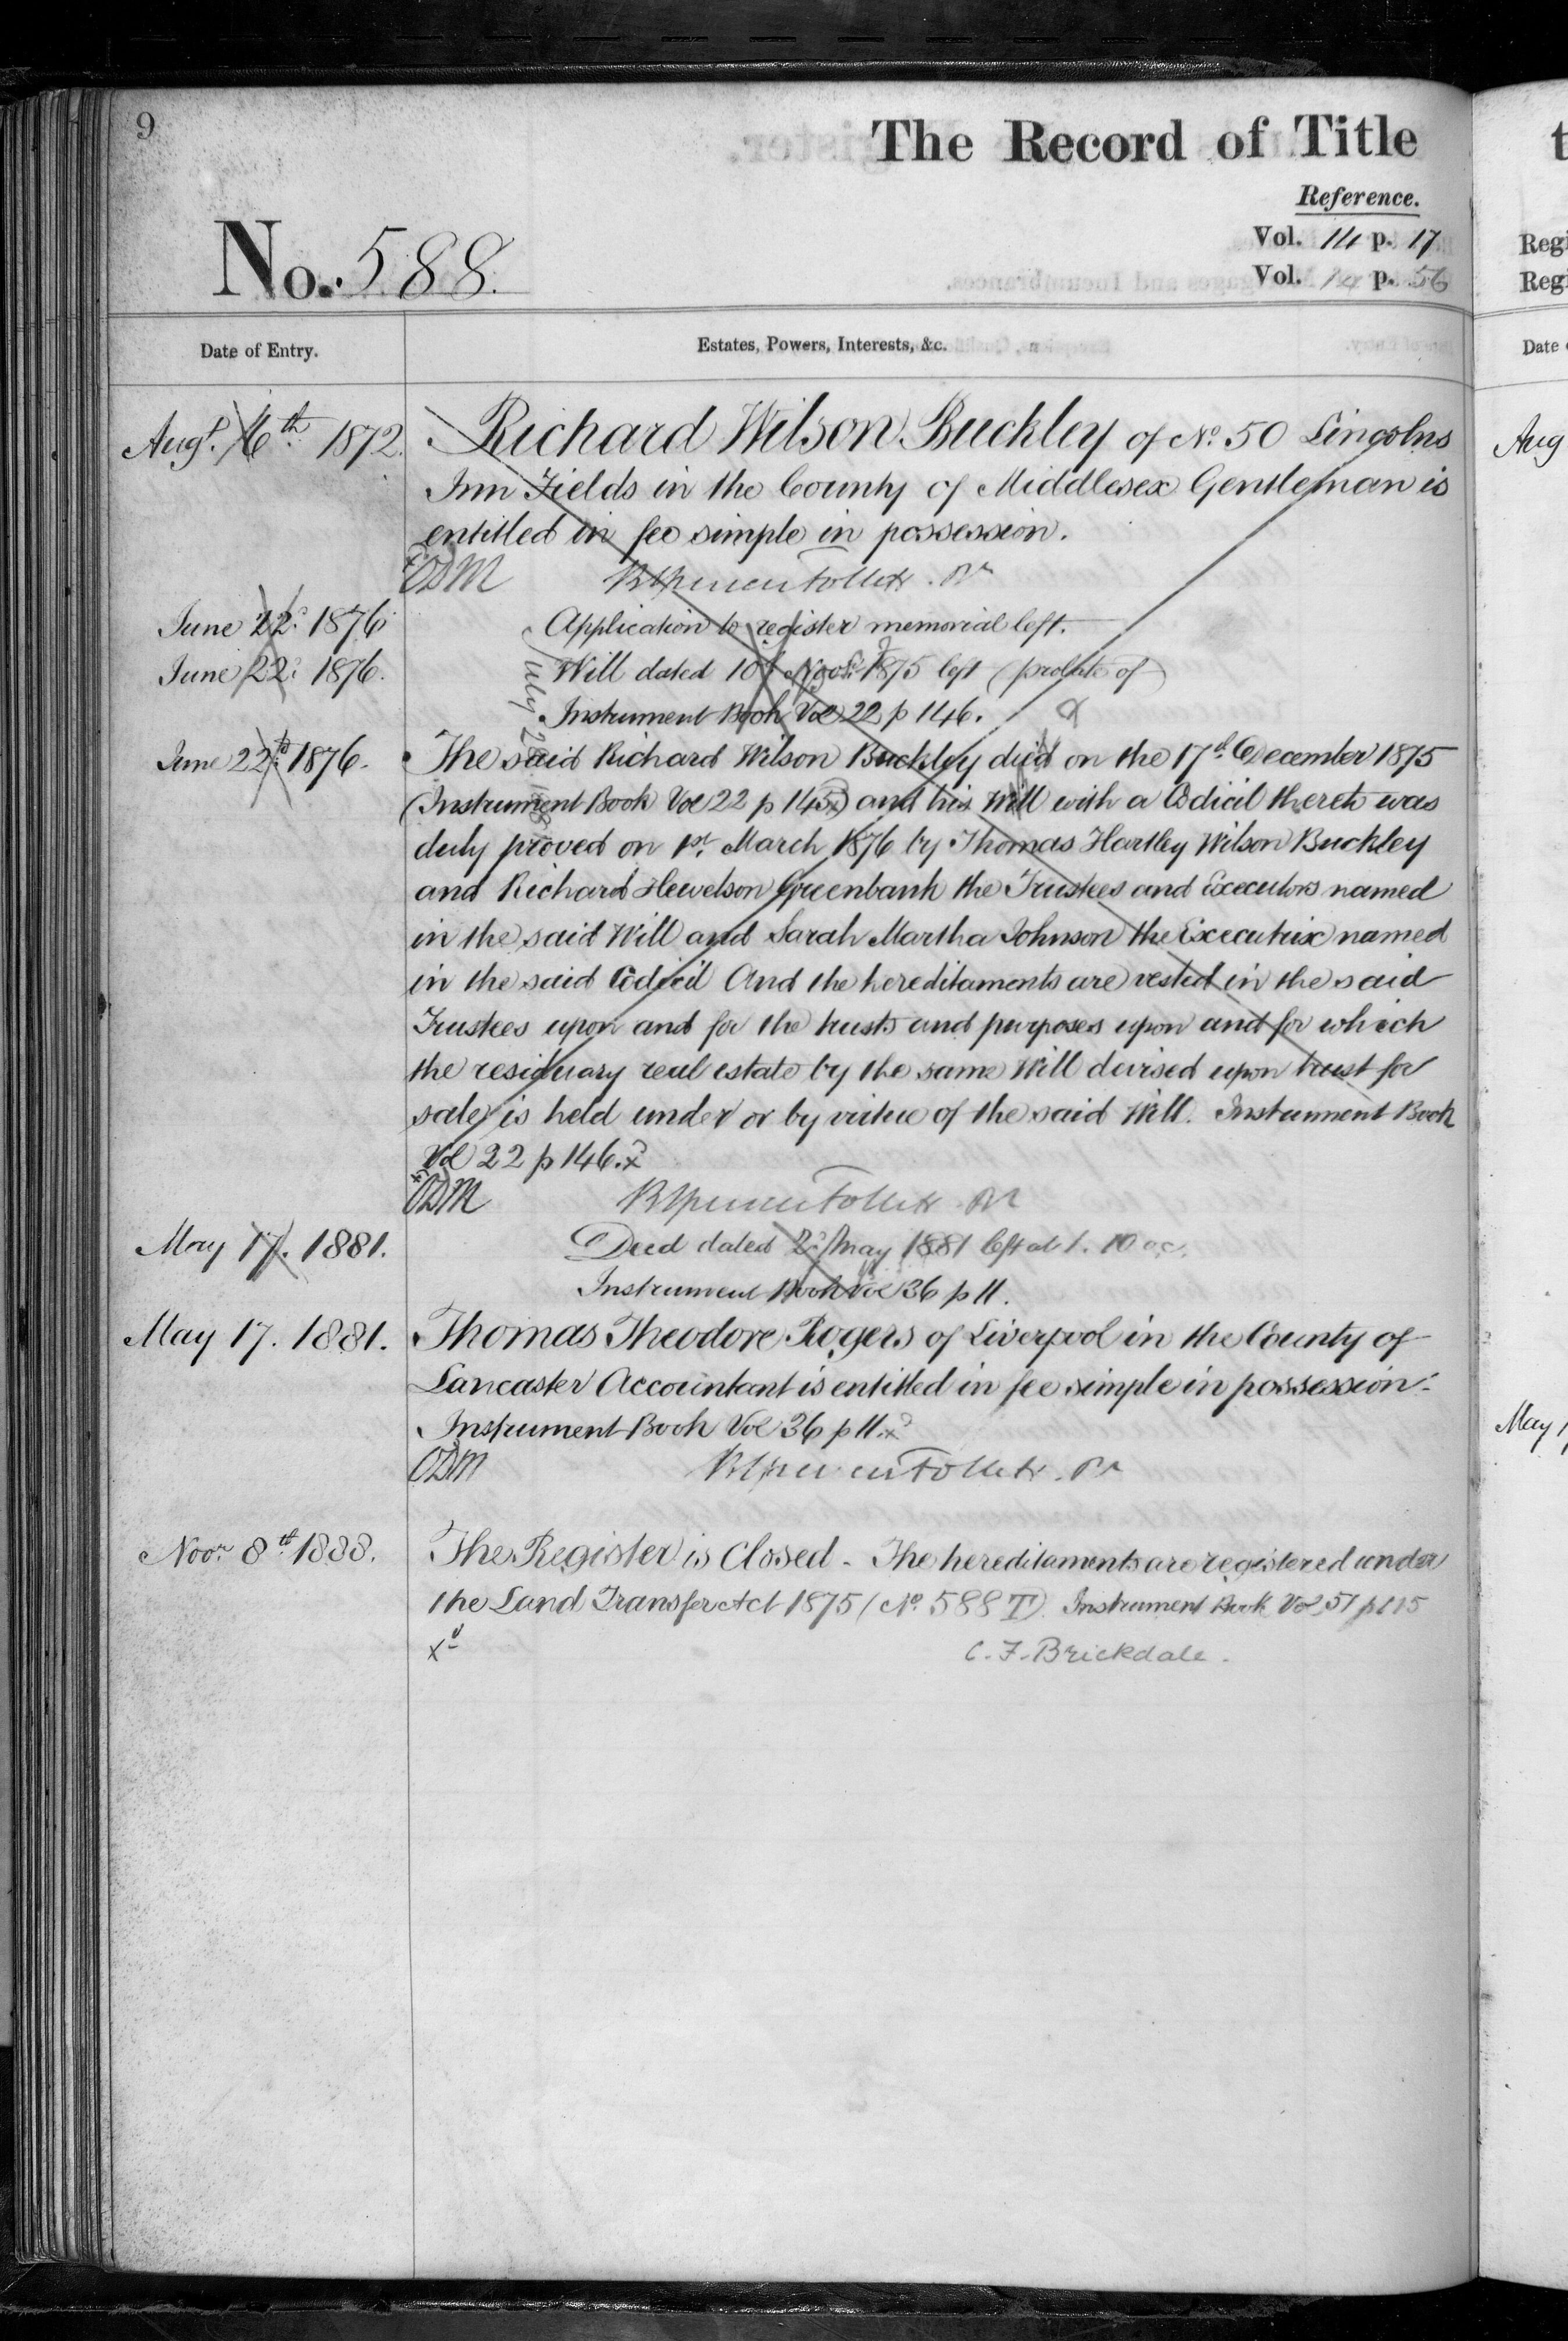 9
The Record of Title
Reference.
Vol. 14 p. 17
No. 588.
Vol. 14 p. 56
Date of Entry.
Estates, Powers, Interests, &c.
Augt. 6th 1872. Richard Wilson Buckley of No. 50 Lincolns
Inn Fields in the County of Middlesex Gentleman is
entitled in fee simple in possession.
June 22d 1876 Application to register memorial left.
June 22d 1876. Will dated 10th Novr. 1875 left (probate of)
Instrument Book Vol 22 p 146.
June 22d 1876. The said Richard Wilson Buckley died on the 17th December 1875
(Instrument Book Vol 22 p 145) and his Will with a Codicil thereto was
duly proved on 1st. March 1876 by Thomas Hartley Wilson Buckley
and Richard Hewetson Greenbank the Trustees and Executors named
in the said Will and Sarah Martha Johnson the Executrix named
in the said Codicil And the hereditaments are vested in the said
Trustees upon and for the trusts and purposes upon and for which
the residuary real estate by the same Will devised upon trust for
sale is held under or by virtue of the said Will. Instrument Book
Vol 22 p 146. xd
May 17. 1881. Deed dated 2d May 1881 left at 1. 10 oc.
Instrument Book Vol 36 p 11.
May 17. 1881. Thomas Theodore Rogers of Liverpool in the County of
Lancaster Accountant is entitled in fee simple in possession.
Instrument Book Vol 36 p 11. xd
Novr. 8th 1888. The Register is Closed - The hereditaments are registered under
the Land Transfer Act 1875 (No. 588 T) Instrument Book Vol. 51 p 115
xd C. F. Brickdale.
Regi
Regi
Date
Aug
May 1